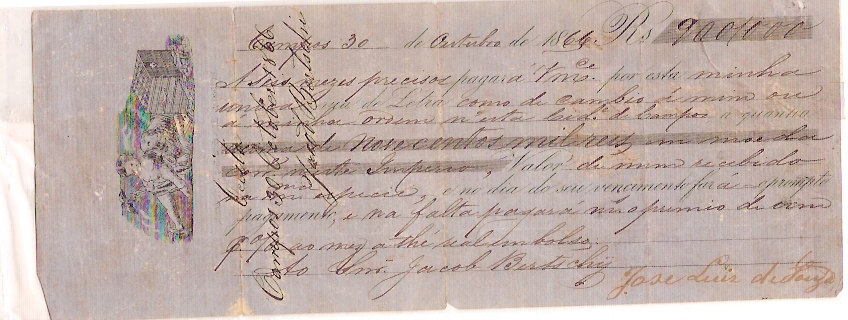 Campos 30 de Outubro de 1866 Rs 900$000
A seis mezes precisos pagará Vmce. por esta minha
unica via de Letra como de cambio á mim ou
á minha ordem n'esta Cid.e de Campos a quantia
de nove centos mil reis em moeda
Imperio, Valor de mim recebido
em especie, e no dia do seu vencimento fará prompto
pagamento, e na falta pagará o premio de um
ao mez athé real embolso.
Ao Snr. Jacob Bertschy
Jose Luis de Souza
Campos 30 de Outubro 1866
Jacob Bertschy